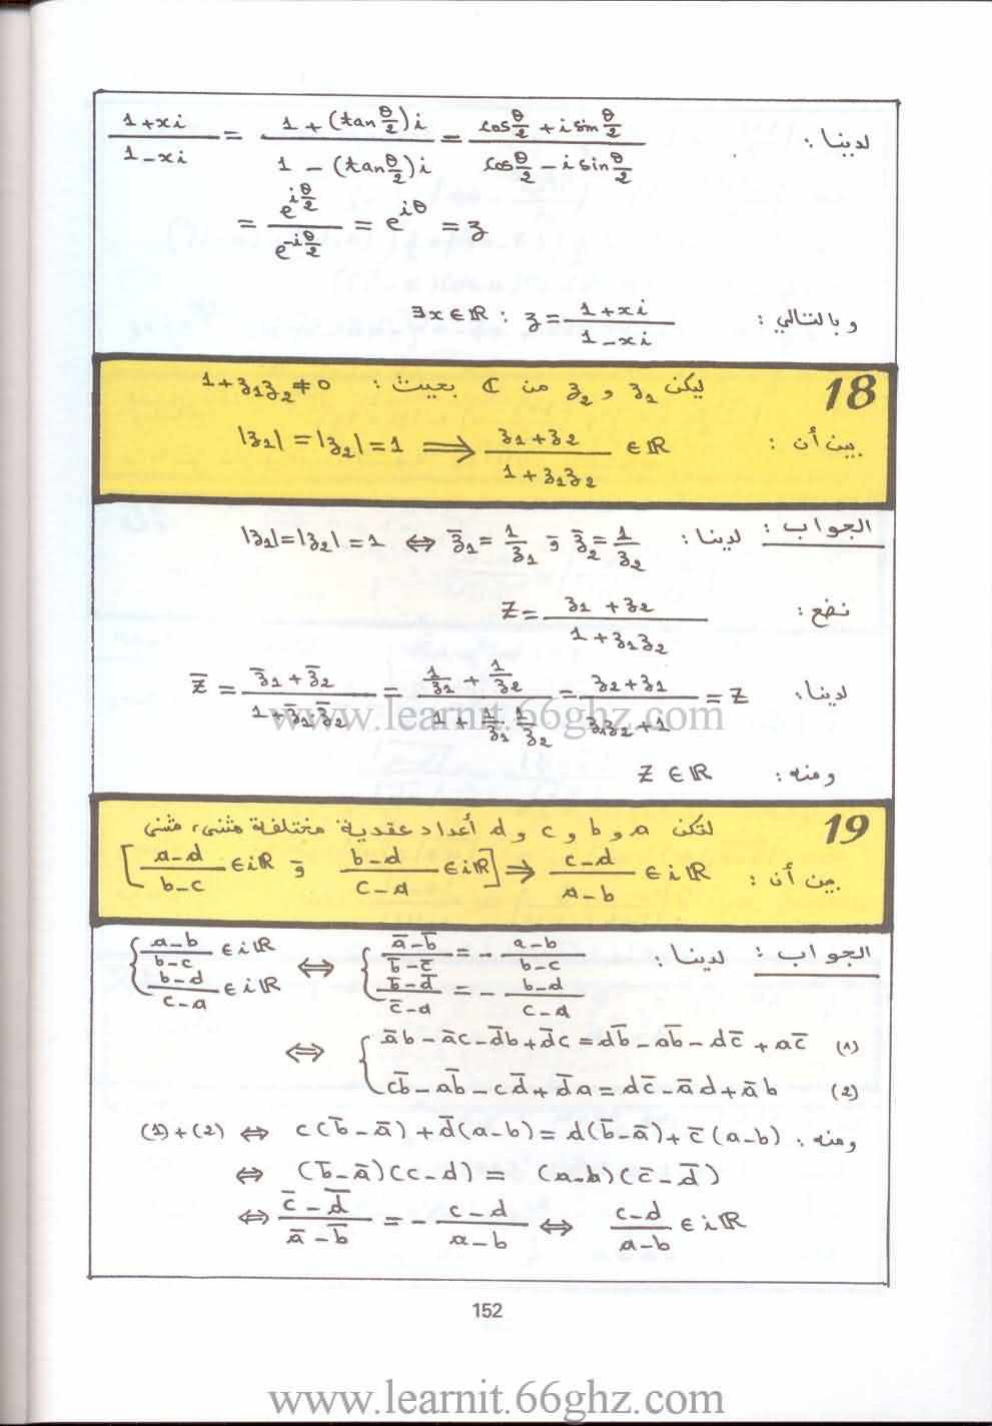 لدينا: (1+xi)/(1-xi) = (1+(tan θ/2)i)/(1-(tan θ/2)i) = (cos θ/2 + i sin θ/2)/(cos θ/2 - i sin θ/2)
= e^{iθ/2}/e^{-iθ/2} = e^{iθ} = z
وبالتالي: ∃x∈ℝ : z = (1+xi)/(1-xi)
18 ليكن z₁ و z₂ من ℂ بحيث: 1+z₁z₂≠0
بين أن: |z₁|=|z₂|=1 ⟹ (z₁+z₂)/(1+z₁z₂) ∈ℝ
الجواب: لدينا: |z₁|=|z₂|=1 ⇔ z̄₁=1/z₁ و z̄₂=1/z₂
نضع: Z=(z₁+z₂)/(1+z₁z₂)
لدينا: Z̄ = (z̄₁+z̄₂)/(1+z̄₁.z̄₂) = (1/z₁+1/z₂)/(1+1/z₁.1/z₂) = (z₂+z₁)/(z₁z₂+1) = Z
www.learnit.66ghz.com
ومنه: Z∈ℝ
19 لتكن a و b و c و d أعداد عقدية مختلفة مثنى، مثنى
بين أن: [(a-d)/(b-c) ∈iℝ و (b-d)/(c-a) ∈iℝ] ⇒ (c-d)/(a-b) ∈iℝ
الجواب: لدينا: {(a-b)/(b-c) ∈iℝ ⇔ {(ā-b̄)/(b̄-c̄) = -(a-b)/(b-c)
(b-d)/(c-a) ∈iℝ (b̄-d̄)/(c̄-a) = -(b-d)/(c-a)
⇔ {āb-āc-d̄b+d̄c=db̄-ab̄-dc̄+ac̄ (1)
cb̄-ab̄-cd̄+d̄a=dc̄-ād+āb (2)
ومنه: (1)+(2) ⇔ c(b̄-ā)+d̄(a-b)=d(b̄-ā)+c̄(a-b)
⇔ (b̄-ā)(c-d)=(a-b)(c̄-d̄)
⇔ (c̄-d̄)/(ā-b̄) = -(c-d)/(a-b) ⇔ (c-d)/(a-b) ∈iℝ
152
www.learnit.66ghz.com